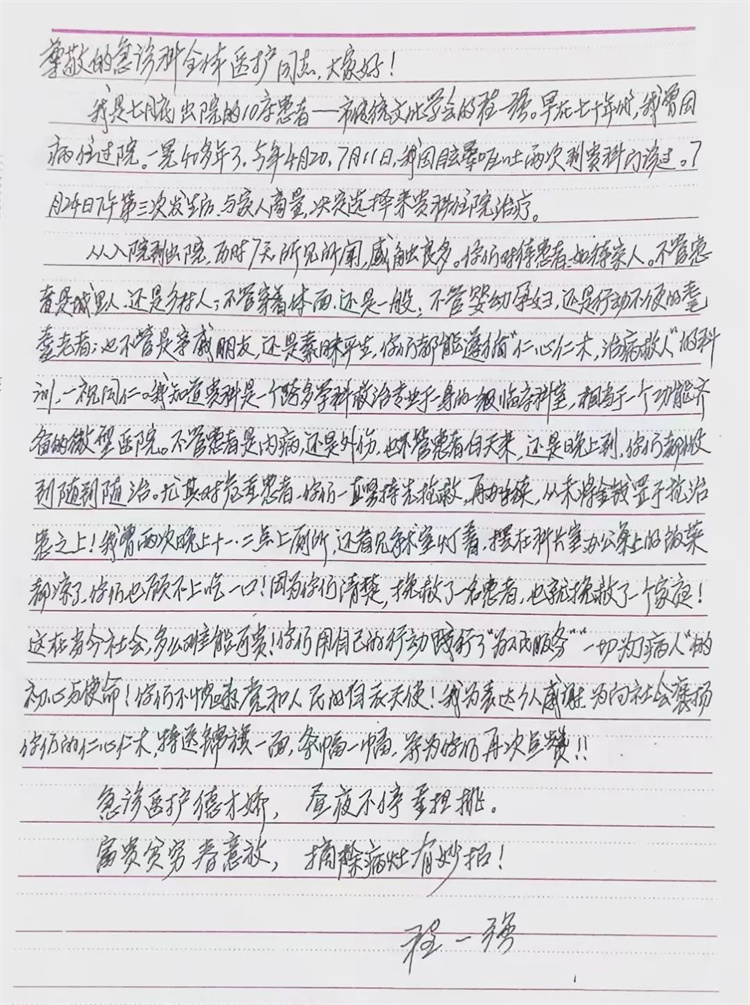 尊敬的急诊科全体医护同志,大家好!
我是七月底出院的10床患者——市传统文化学会的程一强。早在七十年代,我曾因
病住过院。一晃40多年了,今年4月20,7月11日,我因眩晕呕吐两次到贵科门诊过。7
月24日下午第三次发生后,与家人商量,决定选择来贵科住院治疗。
从入院到出院,历时7天,所见所闻,感触良多。你们对待患者,如待亲人。不管患
者是城里人,还是乡村人;不管穿着体面,还是一般;不管婴幼孕妇,还是行动不便的耄
耋老者;也不管是亲戚朋友,还是素昧平生,你们都能遵循"仁心仁术,治病救人"的科
训,一视同仁。我知道贵科是一个跨多学科救治专业于一身的一级临床科室,相当于一个功能齐
备的微型医院。不管患者是内病,还是外伤,也不管患者白天来,还是晚上到,你们都做
到随到随治。尤其对危重患者,你们一直坚持先抢救,再办手续,从未将金钱置于救治
患之上!我曾两次晚上十一、二点上厕所,还看见手术室灯着,摆在科长室办公桌上的饭菜
都凉了,你们也顾不上吃一口!因为你们清楚,挽救了一名患者,也就挽救了一个家庭!
这在当今社会,多么难能可贵!你们用自己的行动践行了"为民服务""一切为了病人"的
初心与使命!你们不愧是党和人民的白衣天使!我为表达个人感谢,为向社会褒扬
你们的仁心仁术,特送锦旗一面,条幅一幅,并为你们再次点赞!!
急诊医护德才娇, 昼夜不停重担挑。
富贵贫穷春意放, 摘除病灶有妙招!
程一强